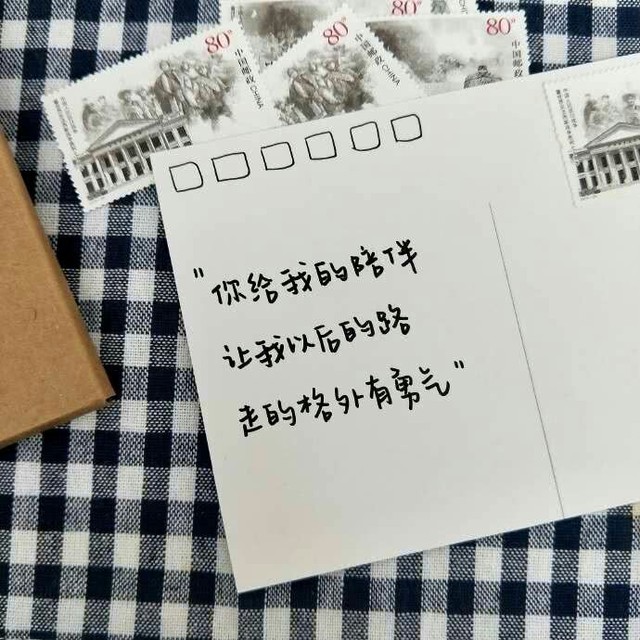 80分
中国邮政
CHINA
80分
中国邮政
CHINA
80分
80分
中国邮政
"你给我的陪伴
让我以后的路
走的格外有勇气"